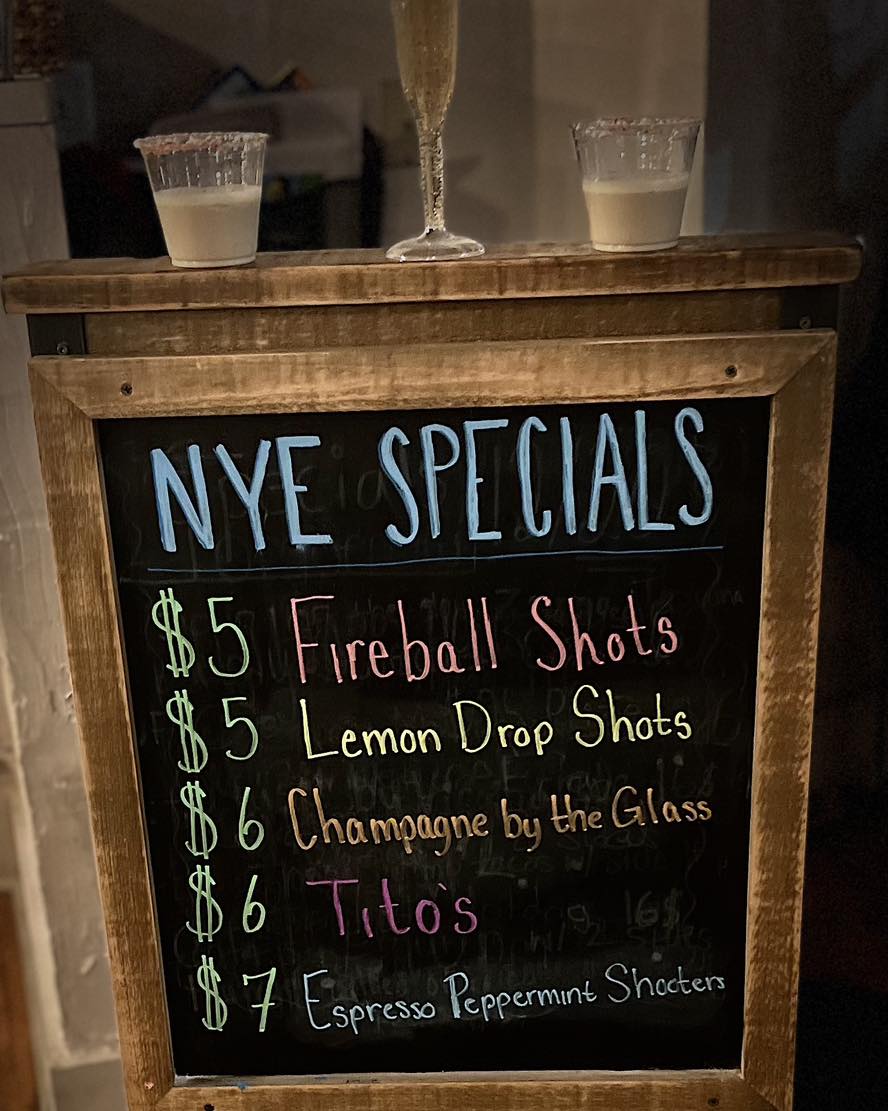 NYE SPECIALS
$5 Fireball Shots
$5 Lemon Drop Shots
$6 Champagne by the Glass
$6 Tito's
$7 Espresso Peppermint Shooters